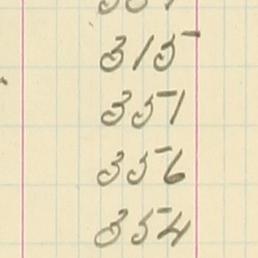 315
351
356
354